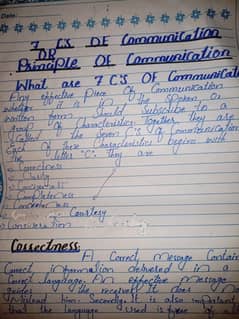 Date:
7 C'S OF Communication
OR
Principle OF Communication
What are 7 C'S OF Communicati
Any effective piece Of Communication
whether it is in the Spoken or
written form Should Subscribe to a
group of Characteristics together they are
Called the Seven C's of Communication
Each of these Characteristics begins with
the letter 'C'. They are
Correctness
Clarity
Completeness
Courtesy
Correctness:
A Correct message Contain
Correct information delivered in a
Correct language. An effective Message
guides the receiver it does no
mislead him. Secondly, It is also important
that the language Used is free of